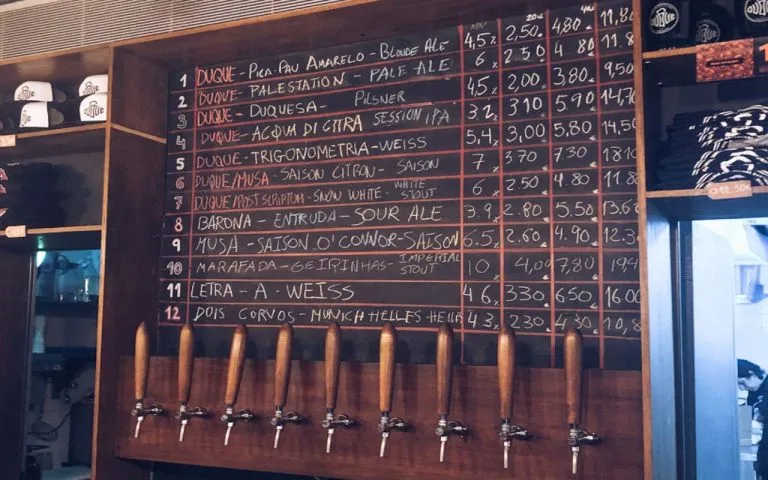 20cL 4cL
1 DUQUE - PICA-PAU AMARELO - BLONDE ALE 4,5% 2,50 4,80 11,8
2 DUQUE - PALE STATION - PALE ALE 6 2 50 4 80 11.8
3 DUQUE - DUQUESA - PILSNER 4,5 2,00 3,80 9,50
4 DUQUE - ACQUA DI CITRA SESSION IPA 3.2 310 590 14,70
5 DUQUE - TRIGONOMETRIA - WEISS 5,4 3,00 5,80 14,50
6 DUQUE/MUSA - SAISON CITRON - SAISON 7 3.70 7.30 18.10
7 DUQUE/POST SCRIPTUM - SNOW WHITE - WHITE STOUT 6 2.50 4.80 11.8
8 BARONA - ENTRUDA - SOUR ALE 3.9 2.80 5.50 13.60
9 MUSA - SAISON O'CONNOR - SAISON 6.5 2.60 4.90 12.3
10 MARAFADA - GEIRINHAS - IMPERIAL STOUT 10 4,00 7,80 19,4
11 LETRA - A - WEISS 4 6 330 650 16.00
12 DOIS CORVOS - MUNICH HELLES - HELLES 4.3 230 4.30 10,8
DUQUE